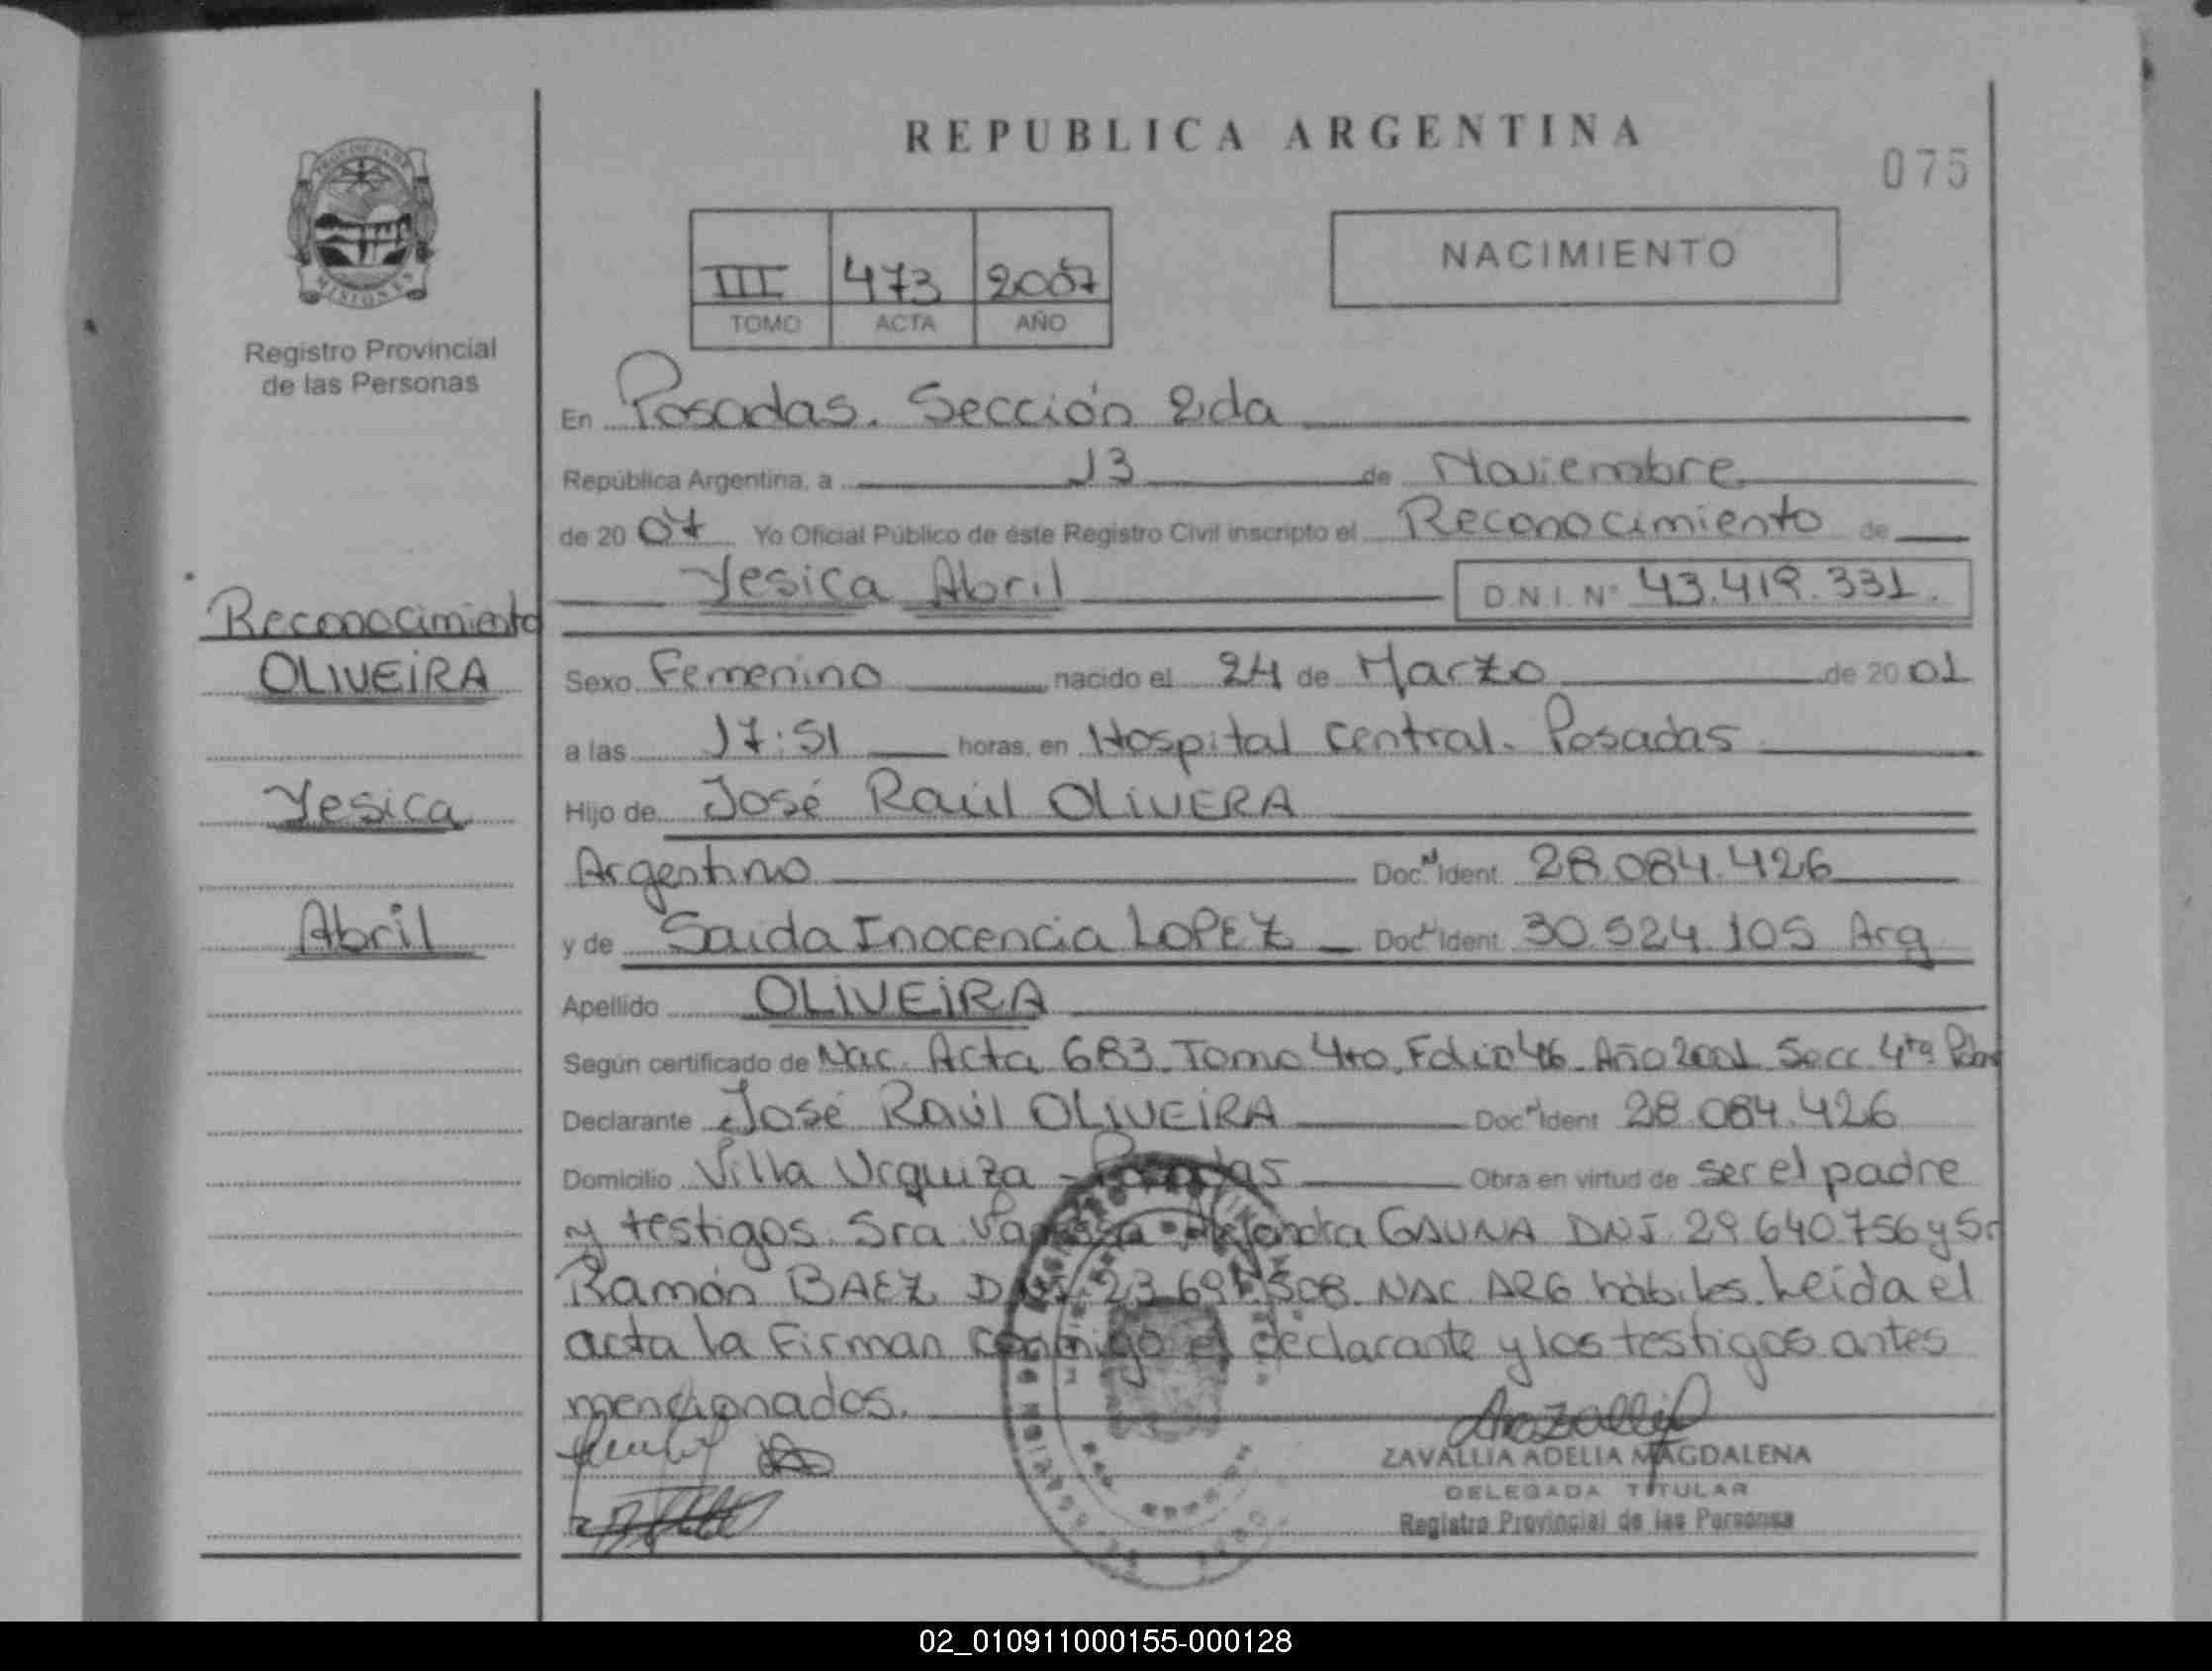 REPUBLICA ARGENTINA
075
III 473 2007
TOMO ACTA AÑO
NACIMIENTO
PROVINCIA DE
MISIONES
Registro Provincial
de las Personas
Reconocimiento
OLIVEiRA
Yesica
Abril
En Posadas. Sección 2da
República Argentina, a 13 de Noviembre
de 20 07 Yo Oficial Público de éste Registro Civil inscripto el Reconocimiento de
Yesica Abril D.N.I. Nº 43.419.331.
Sexo Femenino nacido el 24 de Marzo de 20 01
a las 17:51 horas, en Hospital Central. Posadas
Hijo de José Raúl OLIVERA
Argentino Doc. Ident. 28.084.426
y de Saida Inocencia LOPEZ Doc. Ident. 30.524.105 Arg
Apellido OLIVEiRA
Según certificado de Nac. Acta 683. Tomo 4to. Folio 46. Año 2001 Secc 4ta
Declarante José Raúl OLIVEiRA Doc. Ident. 28.084.426
Domicilio Villa Urquiza - Posadas Obra en virtud de ser el padre
y testigos. Sra. Alejandra GAUNA DNI. 29.640.756 y Sr
Ramón BAEZ NAC ARG hábiles. Leida el
acta la Firman conmigo el declarante y los testigos antes
mencionados.
ZAVALLIA ADELIA MAGDALENA
DELEGADA TITULAR
Registro Provincial de las Personas
02_010911000155-000128